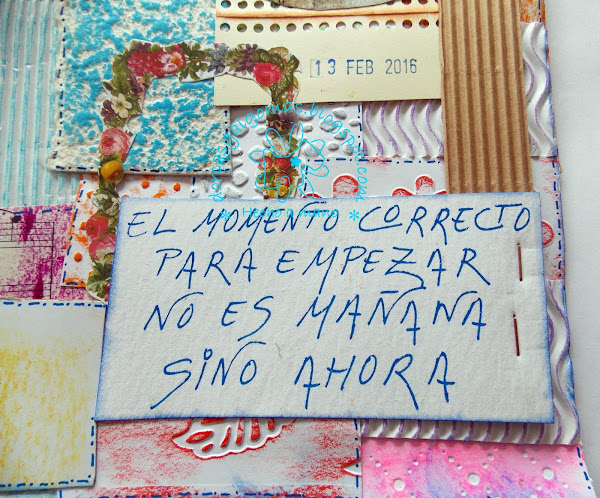 13 FEB 2016
* Hecho a mano *
EL MOMENTO CORRECTO
PARA EMPEZAR
NO ES MAÑANA
SINO AHORA